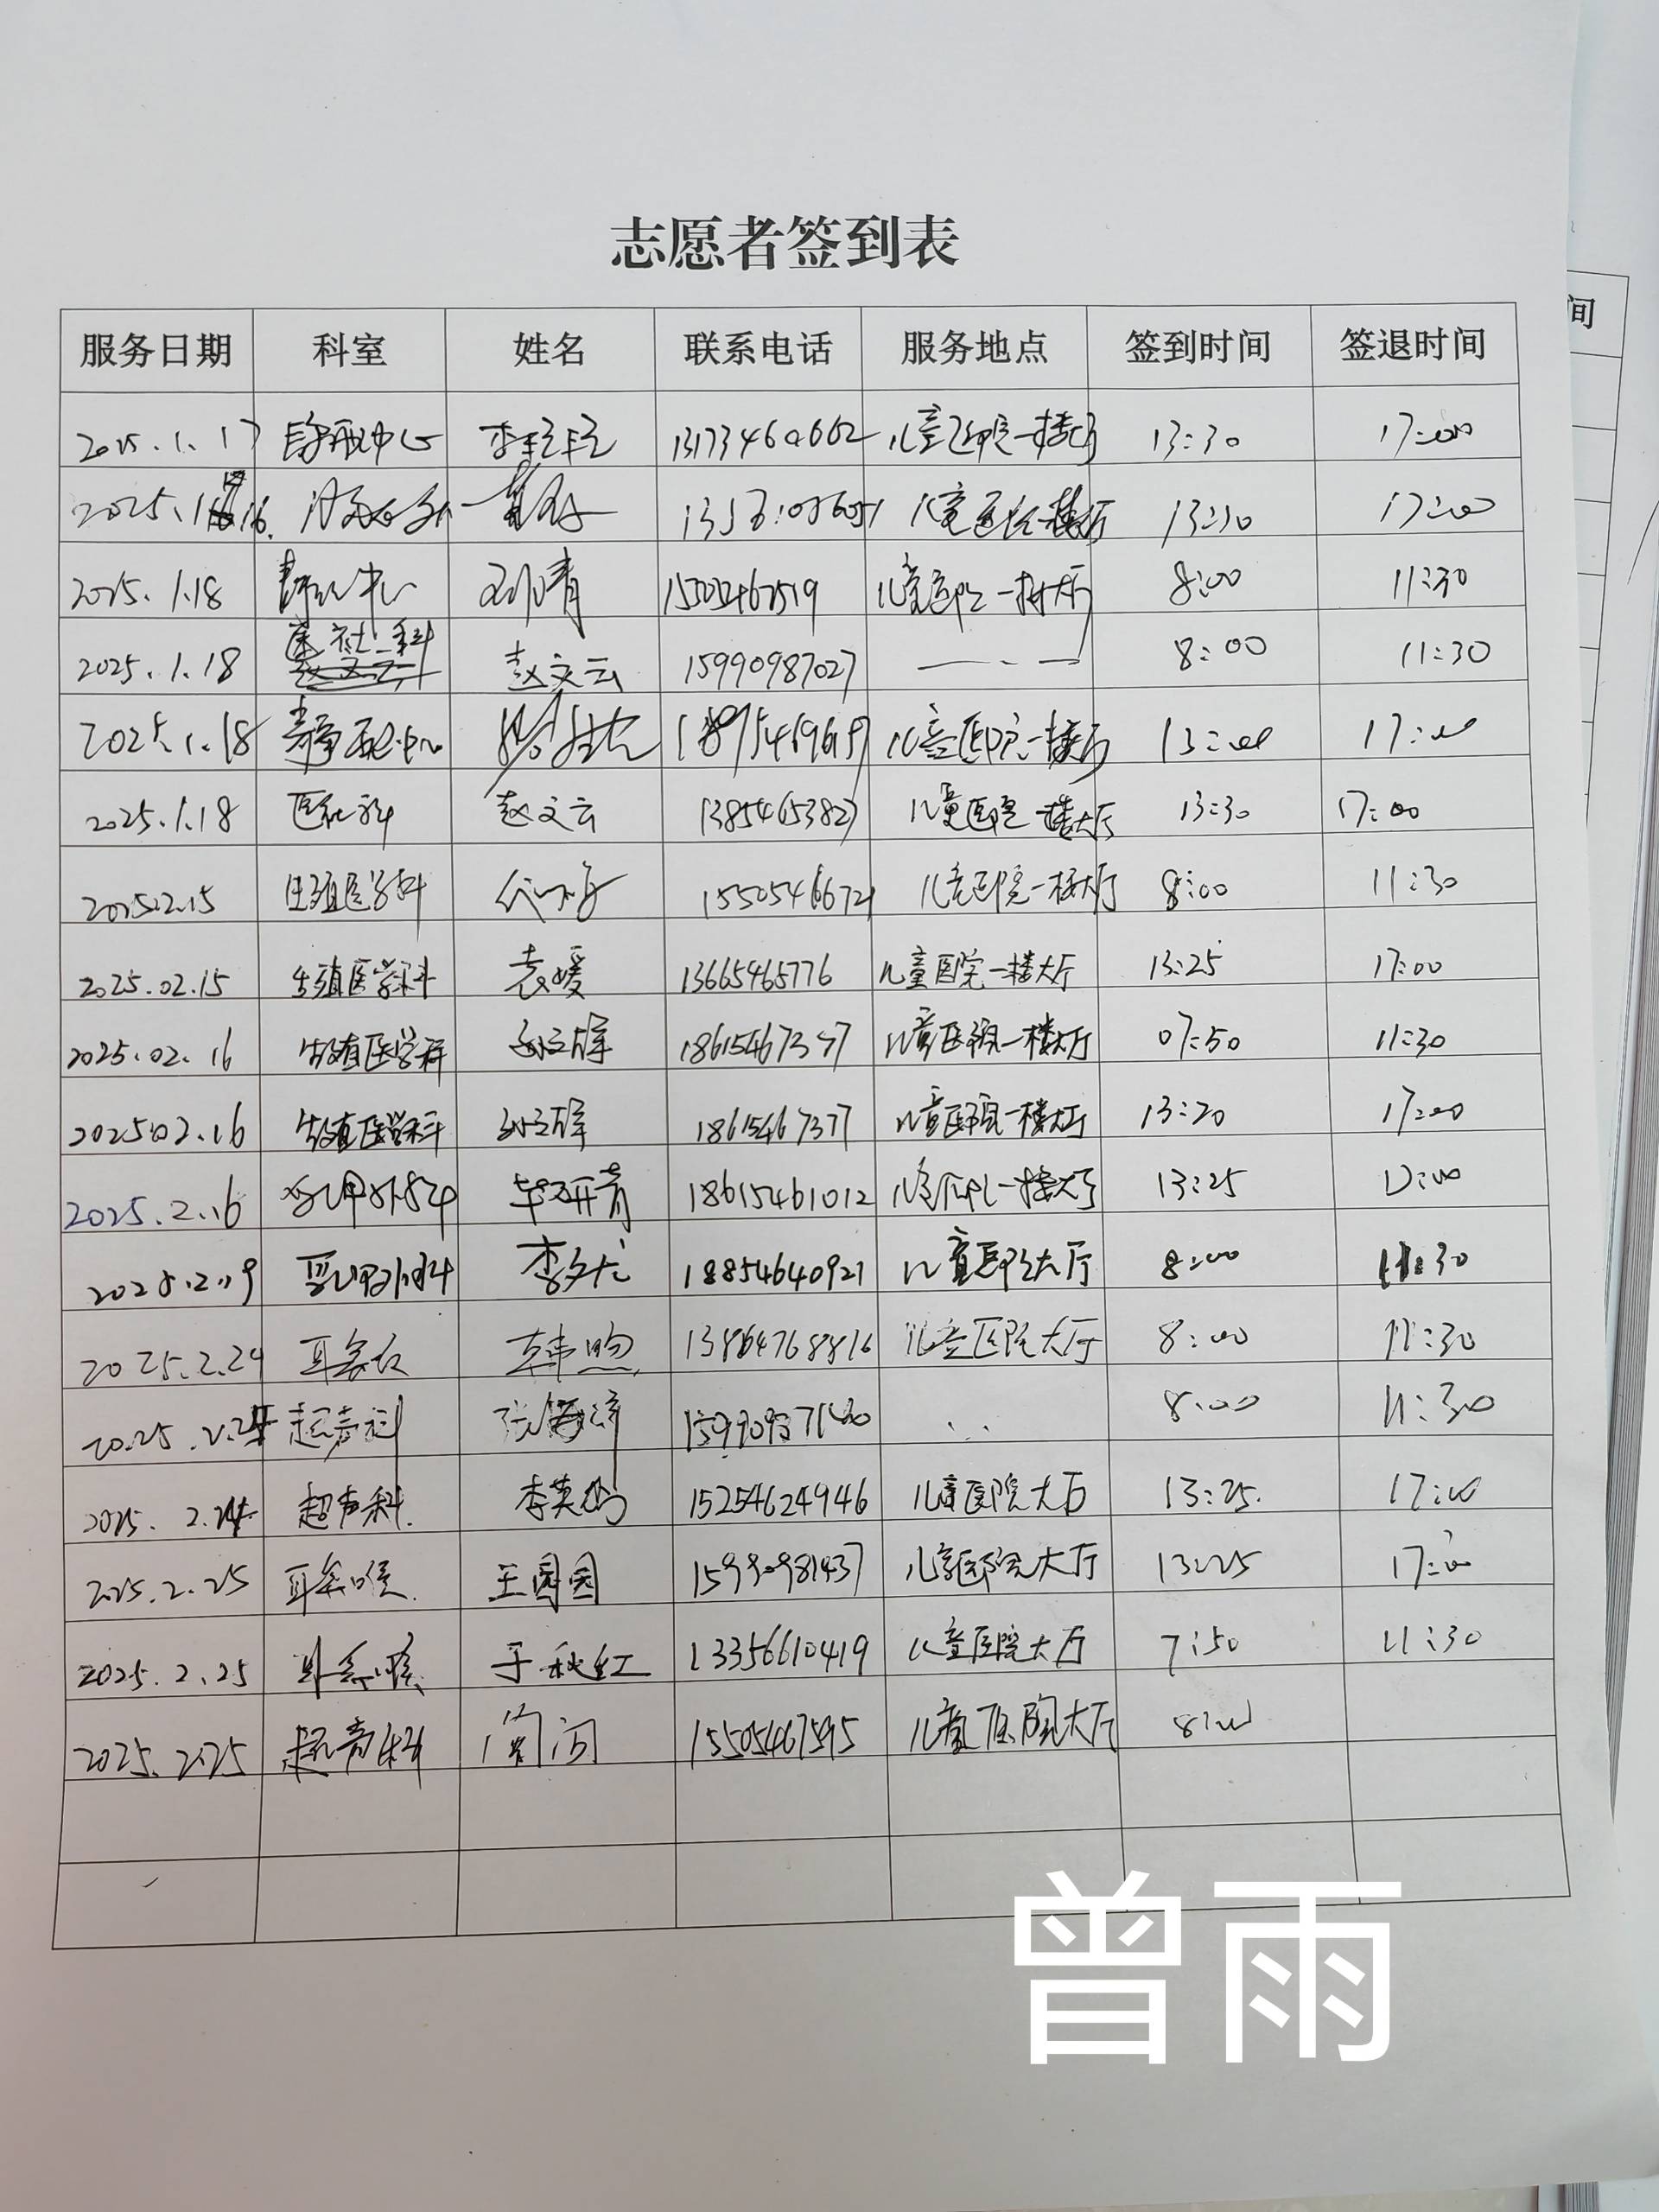 志愿者签到表
服务日期 科室 姓名 联系电话 服务地点 签到时间 签退时间
2025.1.17 静配中心 13173460662 儿童医院一楼 13:30 17:00
2025.1 儿童医院一楼大厅 17:00
2025.1.18 刘青 儿童医院一楼大厅 8:00 11:30
2025.1.18 医社科 赵文云 15990987027 8:00 11:30
2025.1.18 静配中心 儿童医院一楼 13:00 17:00
2025.1.18 赵文云 儿童医院一楼大厅 13:30 17:00
2025.2.15 生殖医学科 15505466721 儿童医院一楼大厅 8:00 11:30
2025.02.15 生殖医学科 袁媛 13665465776 儿童医院一楼大厅 13:25 17:00
2025.02.16 生殖医学科 儿童医院一楼大厅 07:50 11:30
2025.02.16 生殖医学科 18615467377 儿童医院一楼大厅 13:20 17:00
2025.2.16 乳甲外科 毕研青 18615461012 儿童医院一楼大厅 13:25 17:00
2025.2.19 乳甲外科 18854640921 儿童医院大厅 8:00 11:30
2025.2.24 耳鼻喉 韩煦 13864768816 儿童医院大厅 8:00 11:30
2025.2.24 超声科 8:00 11:30
2025.2.24 超声科 15254624946 儿童医院大厅 13:25 17:00
2025.2.25 耳鼻喉 王园园 15990981437 儿童医院大厅 13:25 17:00
2025.2.25 耳鼻喉 于秋红 13356610419 儿童医院大厅 7:50 11:30
2025.2.25 超声科 15505467595 儿童医院大厅 8:00
间
曾雨